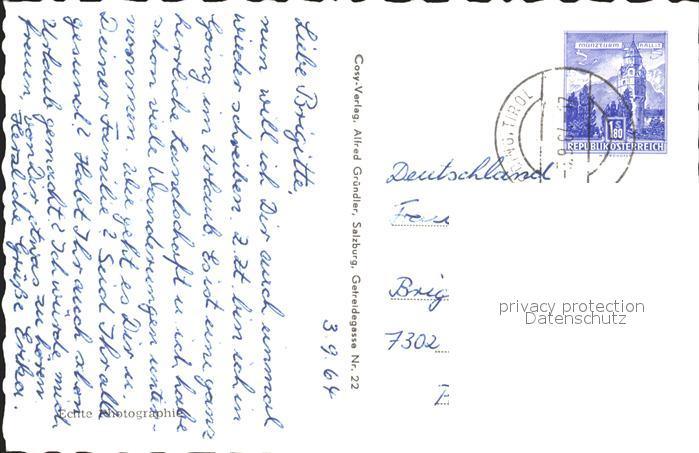 Liebe Brigitte,
nun will ich Dir auch einmal
wieder schreiben. Z. Zt. bin ich in
Going im Urlaub. Es ist eine ganz
herrliche Landschaft u. ich habe
schon viele Wanderungen unter-
nommen. Wie geht es Dir u.
Deiner Familie? Seid Ihr alle
gesund? Habt Ihr auch schon
Urlaub gemacht? Ich würde mich
freuen, von Dir etwas zu hören.
Herzliche Grüße Erika.
3.9.64
Echte Photographie
Cosy-Verlag, Alfred Gründler, Salzburg, Getreidegasse Nr. 22
MÜNZTURM HALL i. T.
S 1.80
REPUBLIK ÖSTERREICH
TIROL
Deutschland
Frau
Brig
7302
privacy protection
Datenschutz